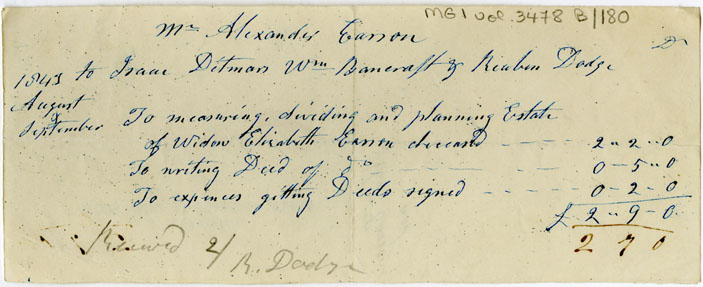 MG1 vol. 3478 B/180
Mr Alexander Easson Dr
1843 to Isaac Ditmars Wm Bancraft & Reuben Dodge
August
&
September
To measuring, dividing and planning Estate
of Widow Elizabeth Easson deceasd - - - - 2 " 2 " 0
To writing Deed of Do - - - - 0 - 5 " 0
To expences getting Deeds signed - - - - 0 - 2 - 0
£ 2 " 9 - 0
2 7 0
Received 2/
R. Dodge